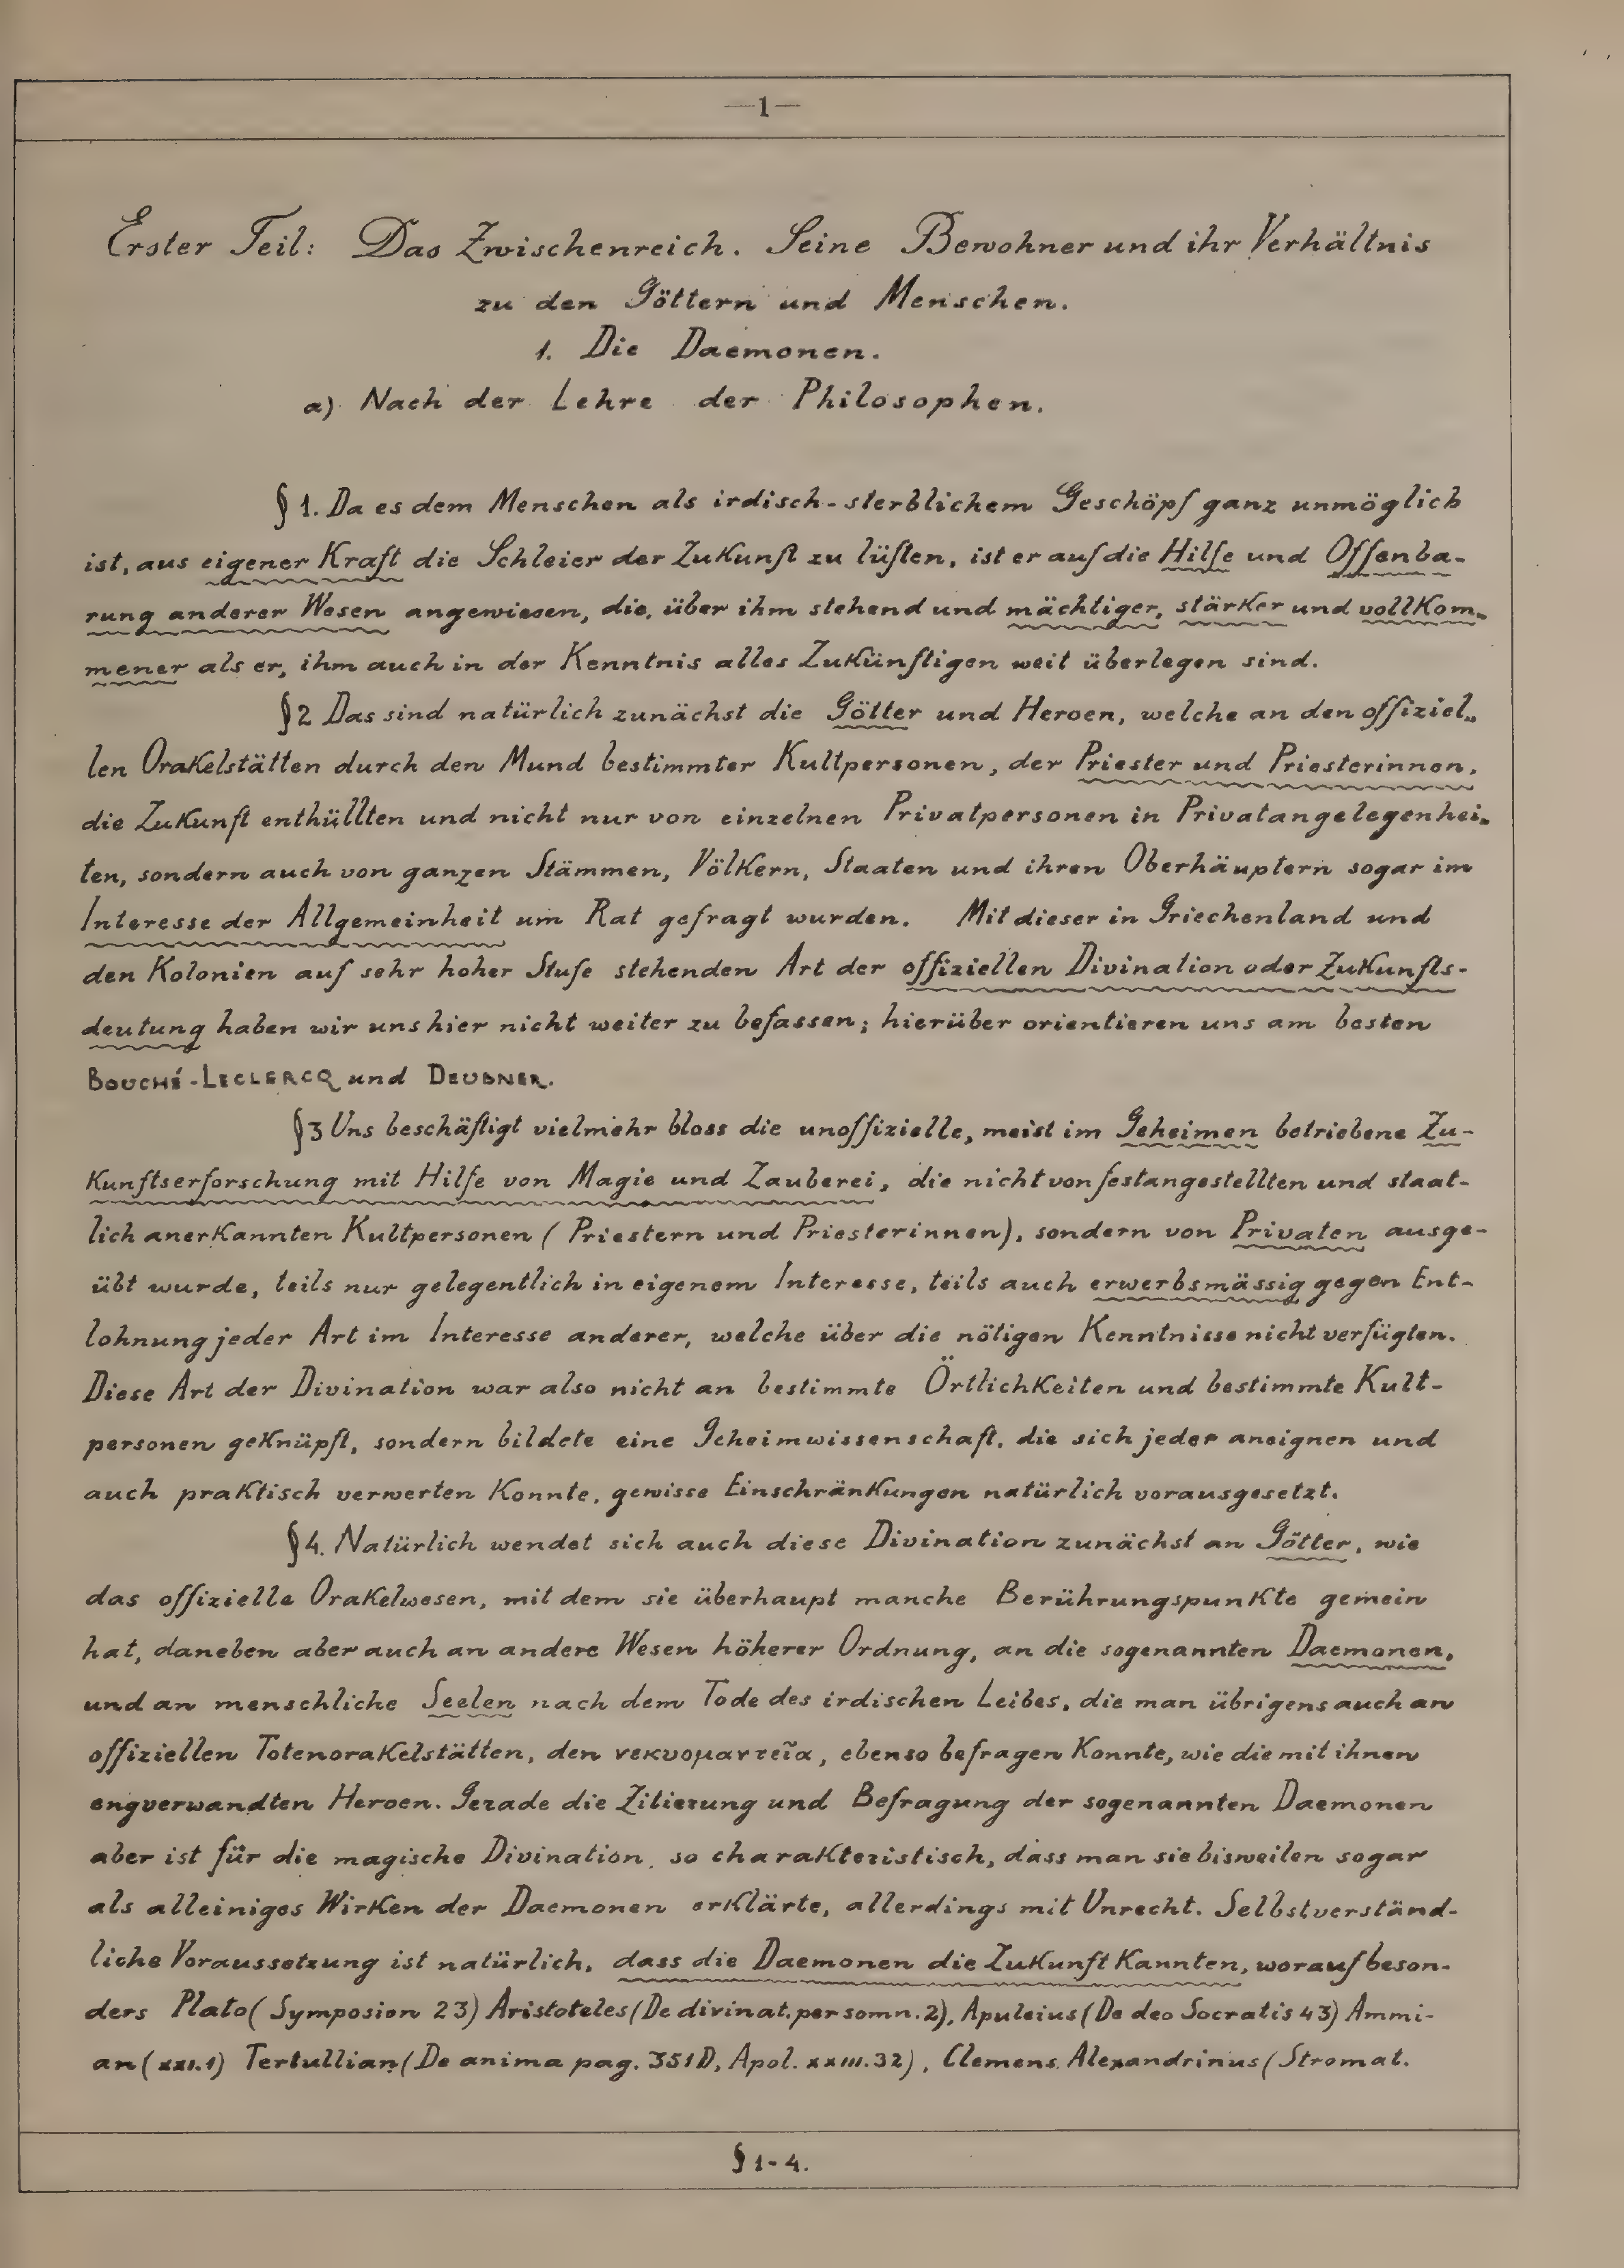 —1—
Erster Teil: Das Zwischenreich. Seine Bewohner und ihr Verhältnis
zu den Göttern und Menschen.
1. Die Daemonen.
a) Nach der Lehre der Philosophen.
§ 1. Da es dem Menschen als irdisch-sterblichem Geschöpf ganz unmöglich
ist, aus eigener Kraft die Schleier der Zukunft zu lüften, ist er auf die Hilfe und Offenba-
rung anderer Wesen angewiesen, die, über ihm stehend und mächtiger, stärker und vollkom-
mener als er, ihm auch in der Kenntnis alles Zukünftigen weit überlegen sind.
§2 Das sind natürlich zunächst die Götter und Heroen, welche an den offiziel-
len Orakelstätten durch den Mund bestimmter Kultpersonen, der Priester und Priesterinnen,
die Zukunft enthüllten und nicht nur von einzelnen Privatpersonen in Privatangelegenhei-
ten, sondern auch von ganzen Stämmen, Völkern, Staaten und ihren Oberhäuptern sogar im
Interesse der Allgemeinheit um Rat gefragt wurden. Mit dieser in Griechenland und
den Kolonien auf sehr hoher Stufe stehenden Art der offiziellen Divination oder Zukunfts-
deutung haben wir uns hier nicht weiter zu befassen; hierüber orientieren uns am besten
BOUCHÉ-LECLERCQ und DEUBNER.
§3 Uns beschäftigt vielmehr bloss die unoffizielle, meist im Geheimen betriebene Zu-
kunftserforschung mit Hilfe von Magie und Zauberei, die nicht von festangestellten und staat-
lich anerkannten Kultpersonen (Priestern und Priesterinnen), sondern von Privaten ausge-
übt wurde, teils nur gelegentlich in eigenem Interesse, teils auch erwerbsmässig gegen Ent-
lohnung jeder Art im Interesse anderer, welche über die nötigen Kenntnisse nicht verfügten.
Diese Art der Divination war also nicht an bestimmte Örtlichkeiten und bestimmte Kult-
personen geknüpft, sondern bildete eine Geheimwissenschaft, die sich jeder aneignen und
auch praktisch verwerten konnte, gewisse Einschränkungen natürlich vorausgesetzt.
§4. Natürlich wendet sich auch diese Divination zunächst an Götter, wie
das offizielle Orakelwesen, mit dem sie überhaupt manche Berührungspunkte gemein
hat, daneben aber auch an andere Wesen höherer Ordnung, an die sogenannten Daemonen,
und an menschliche Seelen nach dem Tode des irdischen Leibes, die man übrigens auch an
offiziellen Totenorakelstätten, den νεκυομαντεῖα, ebenso befragen konnte, wie die mit ihnen
engverwandten Heroen. Gerade die Zitierung und Befragung der sogenannten Daemonen
aber ist für die magische Divination so charakteristisch, dass man sie bisweilen sogar
als alleiniges Wirken der Daemonen erklärte, allerdings mit Unrecht. Selbstverständ-
liche Voraussetzung ist natürlich, dass die Daemonen die Zukunft kannten, worauf beson-
ders Plato (Symposion 23) Aristoteles (De divinat. per somn. 2), Apuleius (De deo Socratis 43) Ammi-
an (XXI.1) Tertullian (De anima pag. 351D, Apol. XXIII.32), Clemens Alexandrinus (Stromat.
§ 1-4.